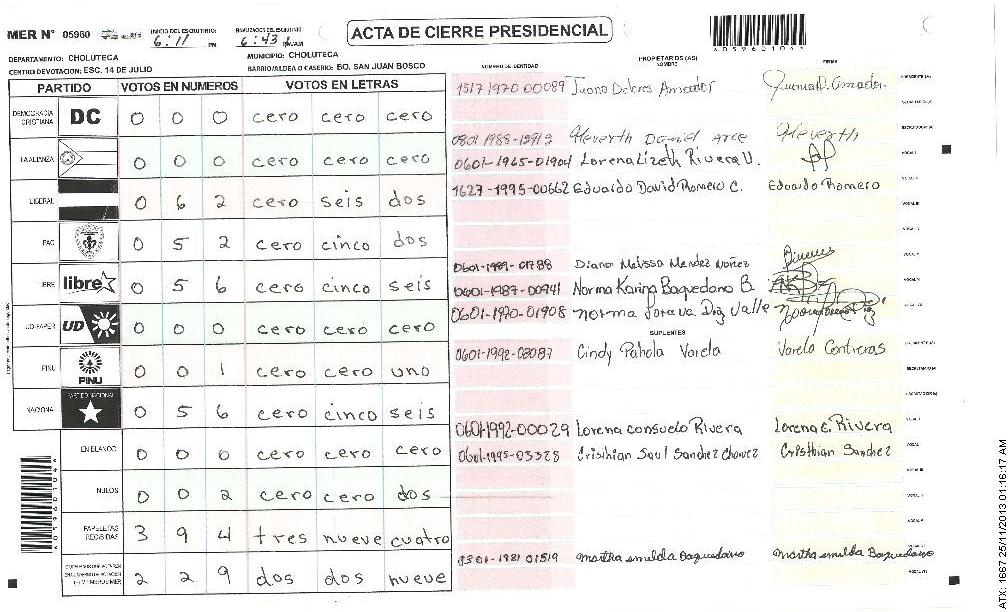 MER N° 05960
INICIO DEL ESCRUTINIO:
6:11 PM
6:43
ACTA DE CIERRE PRESIDENCIAL
A05960104
DEPARTAMENTO: CHOLUTECA
MUNICIPIO: CHOLUTECA
CENTRO DE VOTACION: ESC. 14 DE JULIO
BARRIO/ALDEA O CASERIO: BO. SAN JUAN BOSCO
NUMERO DE IDENTIDAD
PROPIETARIOS (AS)
NOMBRE
FIRMA
PARTIDO VOTOS EN NUMEROS VOTOS EN LETRAS
1517 1970 00089 Juana Dolores Amador Juana D. Amador
DEMOCRACIA CRISTIANA DC 0 0 0 cero cero cero
Heverth Daniel Arce Heverth
LA ALIANZA 0 0 0 cero cero cero
0601-1965-01904 Lorena Lizeth Rivera U.
1627-1995-00662 Eduardo David Romero C. Eduardo Romero
LIBERAL 0 6 2 cero seis dos
PAC 0 5 2 cero cinco dos
0601-1989-01788 Diana Melissa Mendez Nuñez
LIBRE libre 0 5 6 cero cinco seis
0601-1987-00941 Norma Karina Baquedano B.
0601-1970-01908 Norma Valle
UD-FAPER UD 0 0 0 cero cero cero
SUPLENTES
0601-1992-03087 Cindy Pahola Varela Varela Contreras
PINU PINU 0 0 1 cero cero uno
NACIONAL PARTIDO NACIONAL 0 5 6 cero cinco seis
0601-1992-00029 Lorena Consuelo Rivera Lorena C. Rivera
EN BLANCO 0 0 0 cero cero cero
0601-1995-03328 Cristhian Saul Sanchez Chavez Cristhian Sanchez
NULOS 0 0 2 cero cero dos
PAPELETAS RECIBIDAS 3 9 4 tres nueve cuatro
1981 01519 Martha Imelda Baquedano Martha Imelda Baquedano
2 2 9 dos dos nueve
A05960104
ATX: 1667 25/11/2013 01:16:17 AM